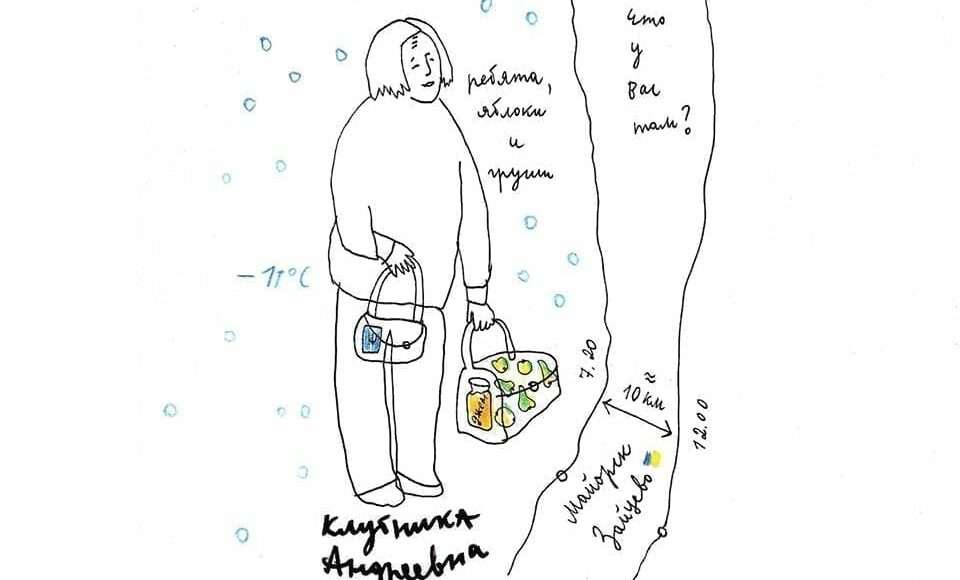 что
у
вас
там?
ребята,
яблоки
и
груши
-11°C
джем
7.20
≈
10 км
12.00
Майорск
Зайцево
Клубника
Андреевна